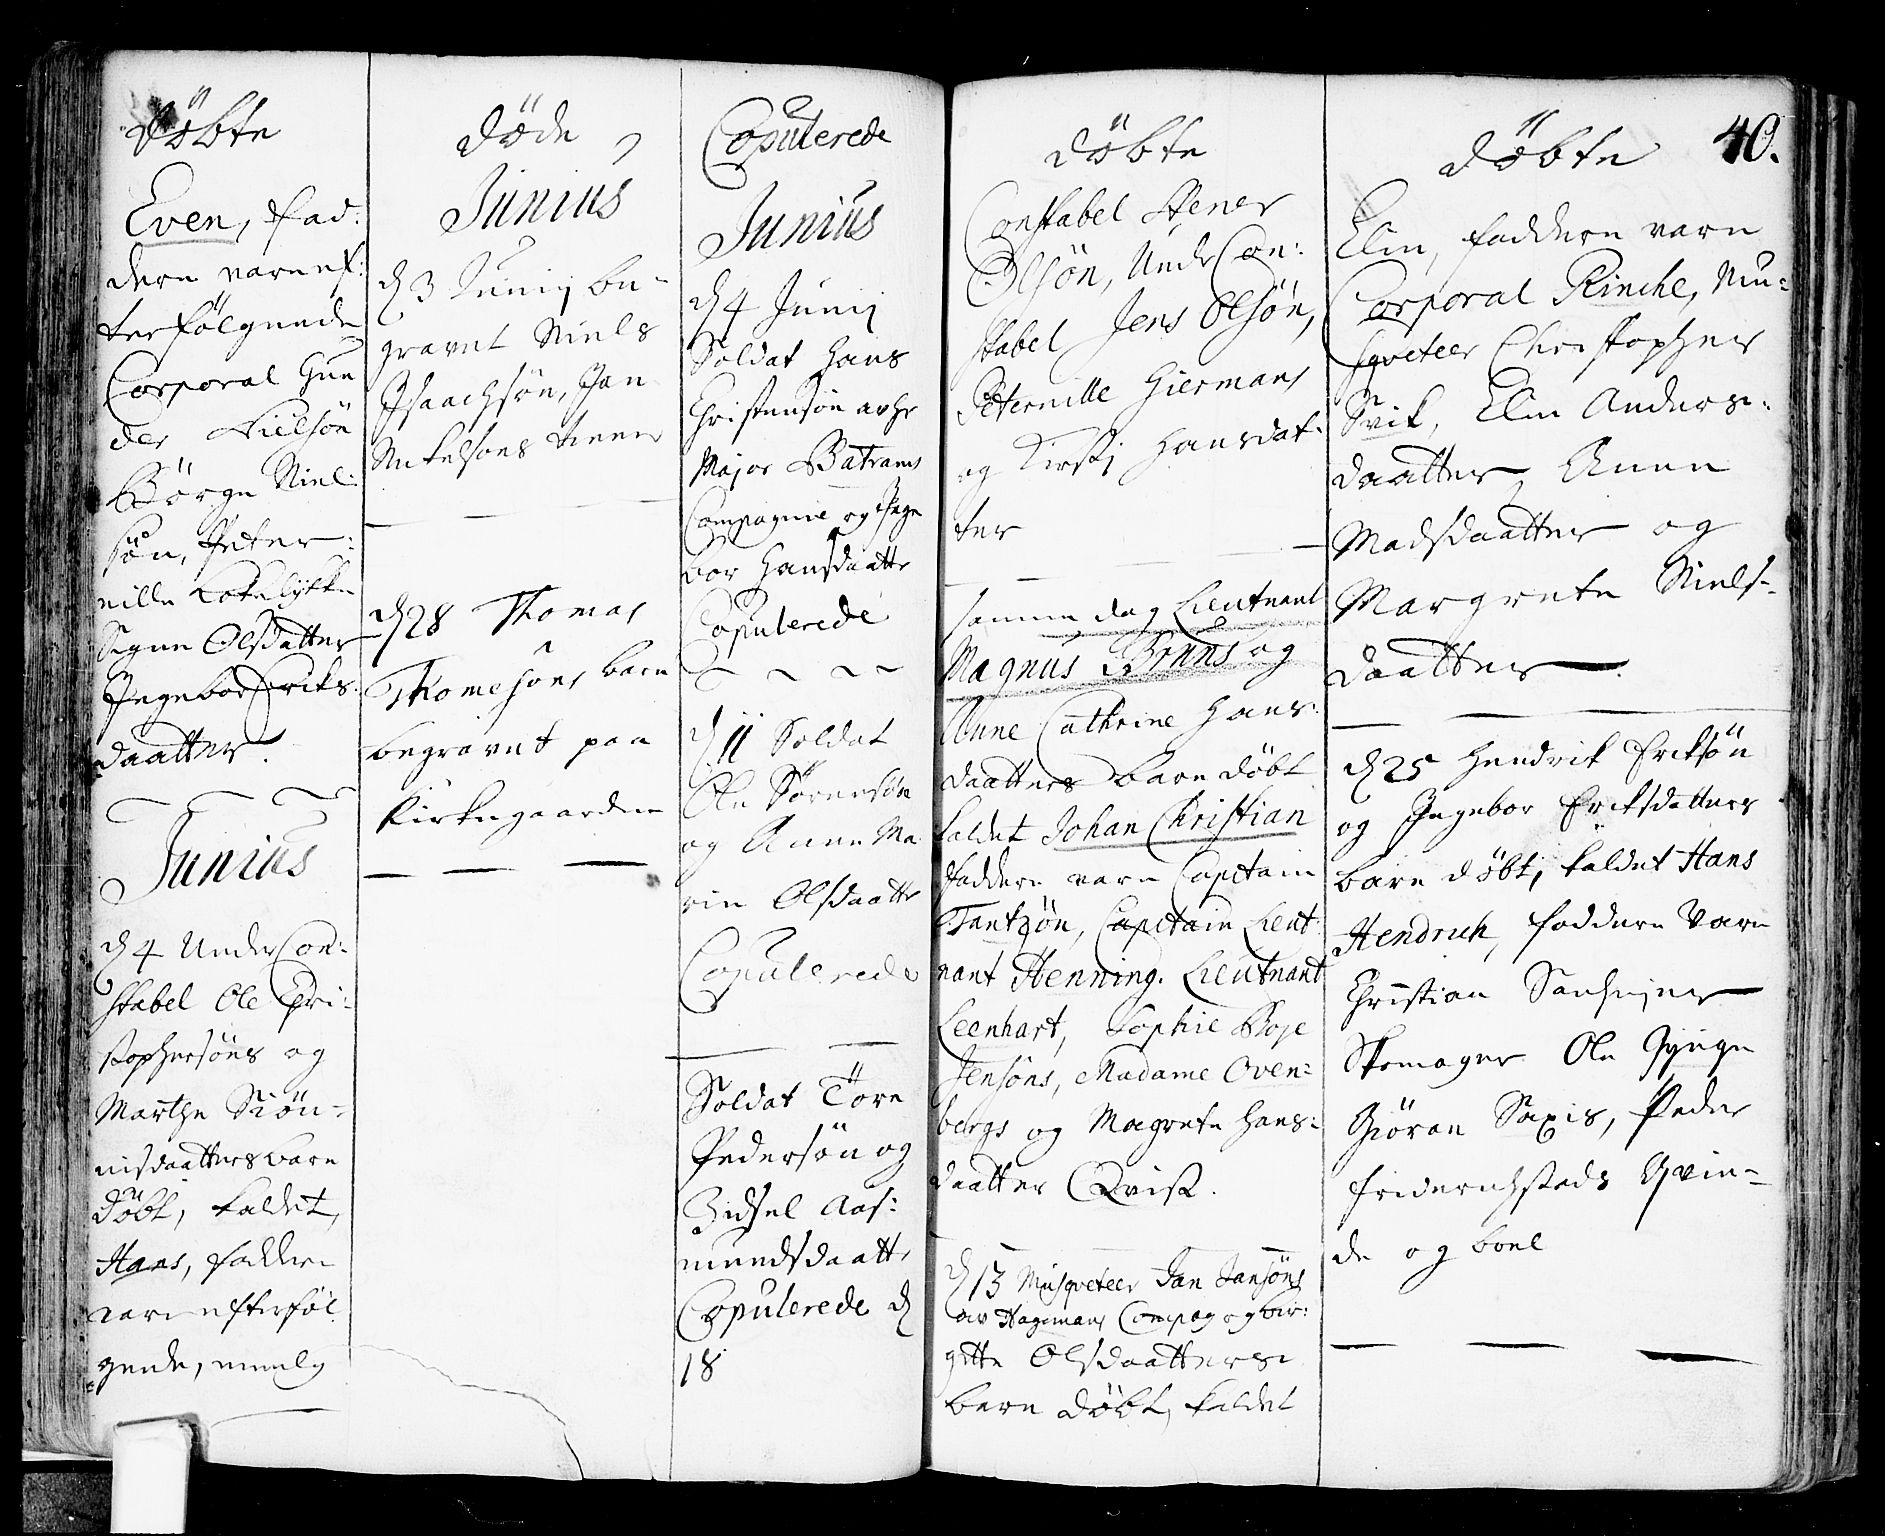 döbte
Even, Fad:
dere vare ef:
terfölgende
Corporal Gun
der Nielsön
Börge Niel:
sön, Peter:
nille
Signe Olsdatter
Ingebor Eriks
daatter.
Junius
d 4 Under Con:
stabel Ole Chri:
stophersöns og
Marthe Siön-
nisdaatters barn
döbt, kaldet,
Hans, faddere
vare efterföl
gende, nemlig
döde
Junius
d 3 Junij be-
gravet Niels
Isaachsön, Jan
Mikelsons
d 28 Thomas
Thomesöns barn
begravet paa
Kirkegaarden
Copulerede
Junius
d 4 Junij
Soldat Hans
Christensön av hr
Major Batrams
Compagnie og Inge
bor Hansdaatter
Copulerede
d 11 Soldat
Ole Sörensön
og Anne Ma
rin Olsdaatter
Copulerede
Soldat Töre
Pedersön og
Zidsel Aas:
mundsdaatter
Copulerede d
18
döbte
Constabel Stener
Olsön, Under Con:
stabel Jens Olsön,
Peternille Giermans
og Kirstj Hansdat:
ter
samme dag Lieutnant
Magnus Bruuns og
Anne Cathrine Hans:
daatters barn döbt
kaldet Johan Christian
faddere vare Capitain
Tantzön, Capitain Lieut
nant Henning. Lieutnant
Leenhart, Sophie Boje
Jensöns, Madame Oven:
bergs og Magrete Hans:
daatter Qvist.
d 13 Musqveteer Jan Jansöns
av Hagemans Compag og bir:
gitte Olsdaatters
barn döbt, kaldet
döbte 40.
Elin, faddere vare
Corporal Rinche, Mu-
sqveteer Christopher
Svik, Elin Anders:
daatter, Anne
Madsdaatter og
Margrete Niels-
daatter.
d 25 Hendrik Eriksön
og Ingebor Eriksdatters
barn döbt, kaldet Hans
Hendrich, faddere vare
Christian
Skomager Ole
Giöran Saxis, Peder
Friderichstads Qvin-
de og boel